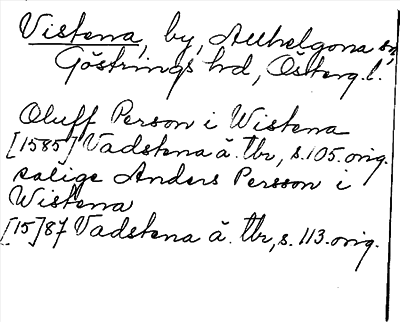 Vistena, by, Allhelgona sn,
Göstrings hd, Österg. l.
Oluff Person i Wistena
[1585] Vadstena ä. tbr, s. 105. orig.
salige Anders Persson i
Wistena
[15]87 Vadstena ä. tbr, s. 113. orig.